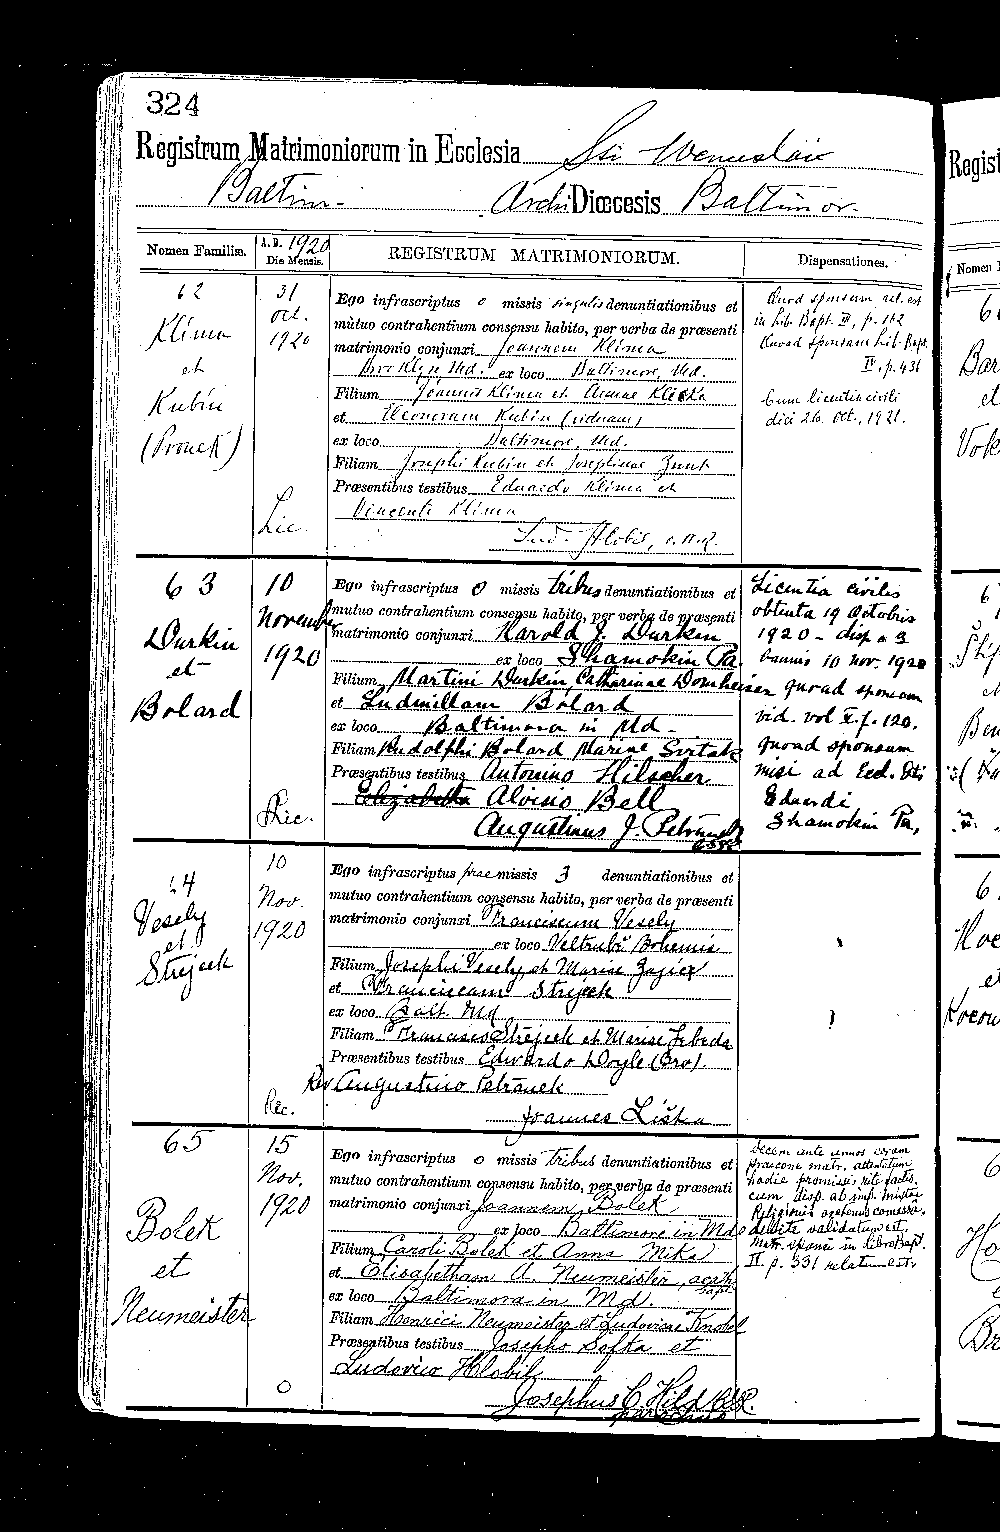 324
Registrum Matrimoniorum in Ecclesia Sti Wenceslai
Baltim. ArchiDiœcesis Baltimor.
Nomen Familiæ.
A. D. 1920
Die Mensis.
REGISTRUM MATRIMONIORUM.
Dispensationes.
62
Klima
et
Kubin
(Prouck)
31
Oct.
1920
Lic.
Ego infrascriptus o missis singulis denuntiationibus et
mutuo contrahentium consensu habito, per verba de præsenti
matrimonio conjunxi Joannem Klima
Brooklyn Md. ex loco Baltimore, Md.
Filium Joannis Klima et Annae Klička
et Eleonoram Kubin (viduam)
ex loco Baltimore, Md.
Filiam Josephi Kubin et Josephinae Zunt
Præsentibus testibus Eduardo Klima et
Vincenti Klima
Lud. Hlobil, c.ss.R.
Quod sponsum rel. est
in Lib. Bapt. III, p. 112
Quoad sponsam Lib. Bapt.
IV, p. 431
Cum licentia civili
diei 26. oct., 1921.
63
Durkin
et
Bolard
10
November
1920
Lic.
Ego infrascriptus o missis tribus denuntiationibus et
mutuo contrahentium consensu habito, per verba de præsenti
matrimonio conjunxi Harold J. Durkin
ex loco Shamokin Pa.
Filium Martini Durkin, Catharinae Dornheiser
et Ludmillam Bolard
ex loco Baltimora in Md.
Filiam Rudolphi Bolard Mariae Svitak
Præsentibus testibus Antonino Hilscher
Elizabetha Aloisio Bell
Augustinus J. Petránek
CSSR
Licentia civilis
obtenta 19 Octobris
1920 - disp a 3
bannis 10 nov. 1920
quoad sponsam
vid. vol V. f. 120.
quoad sponsum
misi ad Eccl. Sti
Eduardi,
Shamokin Pa,
64
Vesely
et
Strejcek
10
Nov.
1920
Lic.
Ego infrascriptus praemissis 3 denuntiationibus et
mutuo contrahentium consensu habito, per verba de præsenti
matrimonio conjunxi Franciscum Vesely
ex loco Veltruby Bohemia
Filium Josephi Vesely et Mariae Zajicx
et Franciscam Strejcek
ex loco Balt. Md
Filiam Francisco Strejcek et Mariae Lebeda
Præsentibus testibus Edwardo Doyle (Bro).
Rev Augustino Petránek
Joannes Liška
65
Bolek
et
Neumeister
15
Nov.
1920
O
Ego infrascriptus o missis tribus denuntiationibus et
mutuo contrahentium consensu habito, per verba de præsenti
matrimonio conjunxi Joannem Bolek
ex loco Baltimore in Md
Filium Caroli Bolek et Anna Mika
et Elisabetham A. Neumeister, acath.
bapt.
ex loco Baltimora in Md.
Filiam Henrici Neumeister et Ludovicae Knobel
Præsentibus testibus Josepho Softa et
Ludovico Hlobil
Josephus C. Hild CSSR.
parochus
Decem ante annos coram
praecone matr. attentatum
hodie promissis rite factis
cum disp. ab imp. mixtae
Religionis
debite validatum est.
Matr. sponsi in libro Bapt.
II. p. 331 relatum est.
Regist
Nomen F
Bar
et
Vok
Ben
Koc
et
Kocour